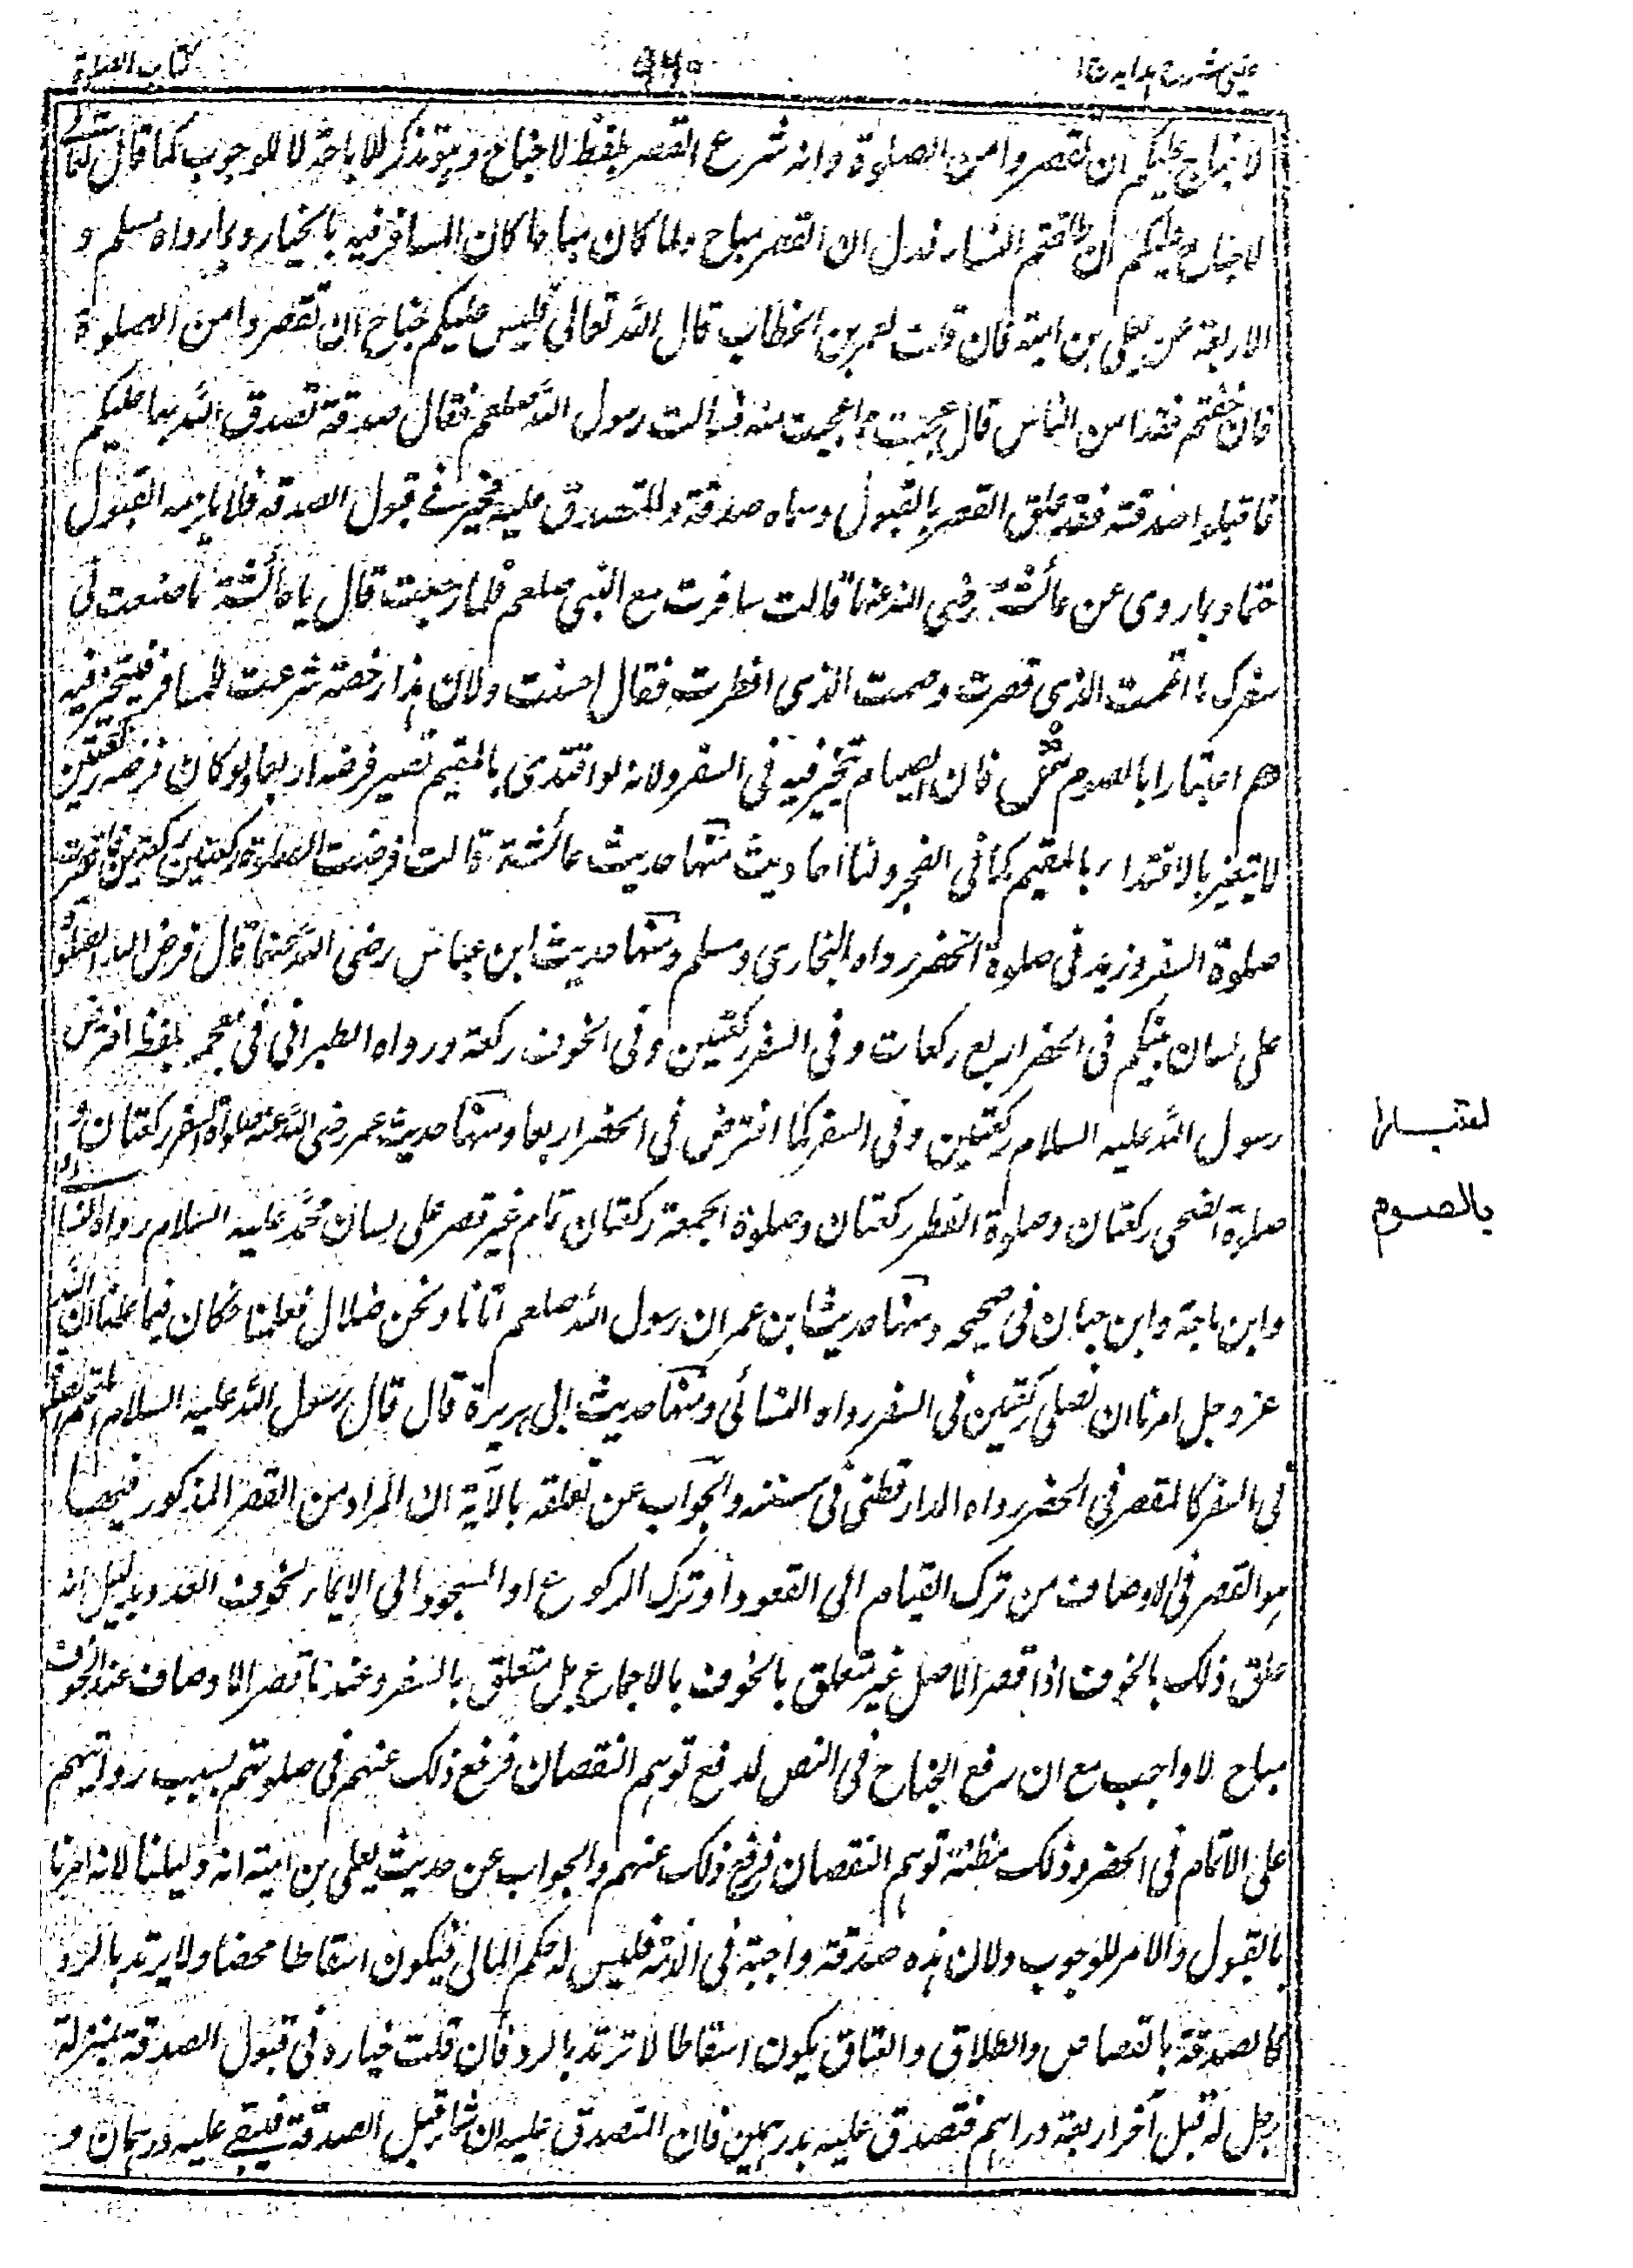 عيني شرح هدايه ج ١
٩٤٠
كتاب الصلوة
لا جناح عليكم ان تقصروا من الصلوة وانه شرع القصر بلفظ لا جناح وهو يذكر للاباحة لا للوجوب كما قال الله تعالى
لا جناح عليكم ان طلقتم النساء فدل ان القصر مباح ولما كان مباحا كان المسافر فيه بالخيار وبما رواه مسلم و
الاربعة عن يعلى بن امية قال قلت لعمر بن الخطاب قال الله تعالى فليس عليكم جناح ان تقصروا من الصلوة
فان خفتم فقد امن الناس قال عجبت مما عجبت منه فسالت رسول الله صلعم فقال صدقة تصدق الله بها عليكم
فاقبلوا صدقته فقد علق القصر بالقبول وسماه صدقة والمتصدق عليه مخير في قبول الصدقة فلا يلزمه القبول
حتما وبما روى عن عائشة رضى الله عنها قالت سافرت مع النبي صلعم فلما رجعت قال يا عائشة ما صنعت في
سفرك ما اتممت الذى قصرت وصمت الذى افطرت فقال احسنت ولان هذا رخصة شرعت للمسافر فيتخير فيه
هم اعتبارا بالصوم ش فان الصيام يخير فيه في السفر ولانه لو اقتدى بالمقيم تصير فرضه اربعا ولو كان فرضه ركعتين
لا يتغير بالاقتداء بالمقيم كما في الفجر ولنا احاديث منها حديث عائشة قالت فرضت الصلوة ركعتين ركعتين فاقرت
صلوة السفر وزيد في صلوة الحضر رواه البخارى ومسلم ومنها حديث ابن عباس رضى الله عنهما قال فرض الله الصلوة
على لسان نبيكم في الحضر اربع ركعات وفى السفر ركعتين وفى الخوف ركعة ورواه الطبراني في معجمه بلفظ افترض
رسول الله عليه السلام ركعتين وفى السفر كما افترض في الحضر اربعا ومنها حديث عمر رضى الله عنه صلوة السفر ركعتان و
صلوة الضحى ركعتان وصلوة الفطر ركعتان وصلوة الجمعة ركعتان تمام غير قصر على لسان محمد عليه السلام رواه النسائى
وابن ماجة وابن حبان في صحيحه ومنها حديث ابن عمر ان رسول الله صلعم اتانا ونحن ضلال فعلمنا فكان فيما علمنا ان الله
عز وجل امرنا ان نصلى ركعتين في السفر رواه النسائى ومنها حديث ابى هريرة قال قال رسول الله عليه السلام المتمم الصلوة
في السفر كالمقصر في الحضر رواه الدارقطنى في سننه والجواب عن تعلقه بالآية ان المراد من القصر المذكور فيها
هو القصر في الاوصاف من ترك القيام الى القعود او ترك الركوع او السجود الى الايماء لخوف العدو بدليل انه
علق ذلك بالخوف اذا قصر الاصل غير متعلق بالخوف بالاجماع بل متعلق بالسفر وعندنا قصر الاوصاف عند الخوف
مباح لا واجب مع ان رفع الجناح في النص لدفع توهم النقصان فرفع ذلك عنهم في صلوتهم بسبب
على الاتمام في الحضر وذلك مظنة توهم النقصان فرفع ذلك عنهم والجواب عن حديث يعلى بن امية انه دليلنا لانه امرنا
بالقبول والامر للوجوب ولان هذه صدقة واجبة في الذمة فليس له حكم المالى فيكون اسقاطا محضا ولا يرتد بالرد
كالصدقة بالقصاص والطلاق والعتاق يكون اسقاطا لا ترتد بالرد فان قلت خياره في قبول الصدقة بمنزلة
رجل له قبل آخر اربعة دراهم فتصدق عليه بدرهمين فان المتصدق عليه ان شاء قبل الصدقة فيبقے عليه درهمان و
بالصوم